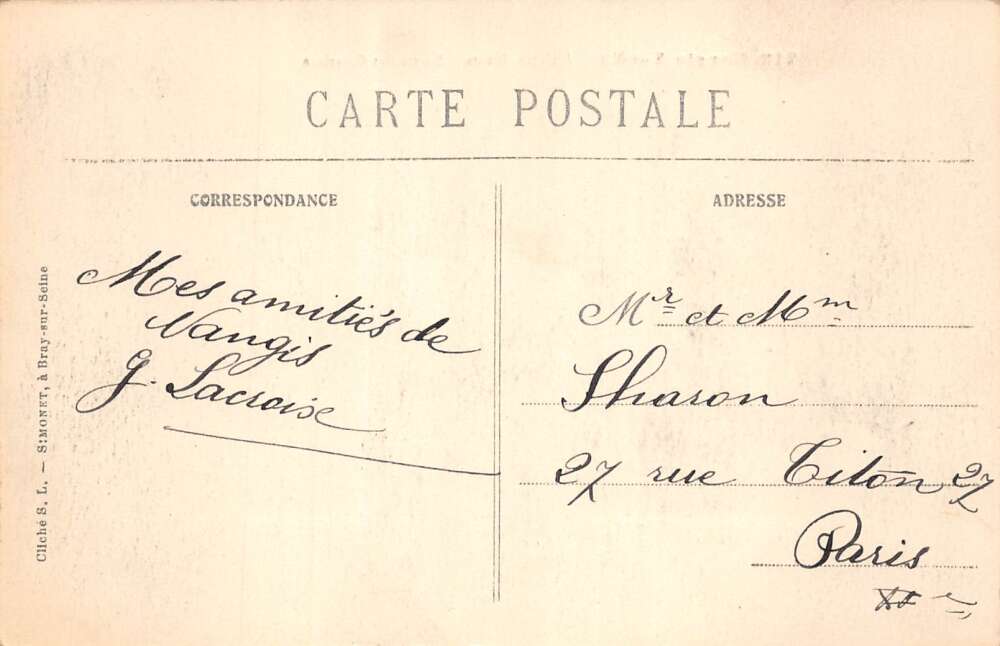 CARTE POSTALE
CORRESPONDANCE
ADRESSE
Cliché S. L. — SIMONET, à Bray-sur-Seine
Mes amitiés de
Nangis
G. Lacroise
Mr et Mm
Sharon
27 rue Titon 27
Paris